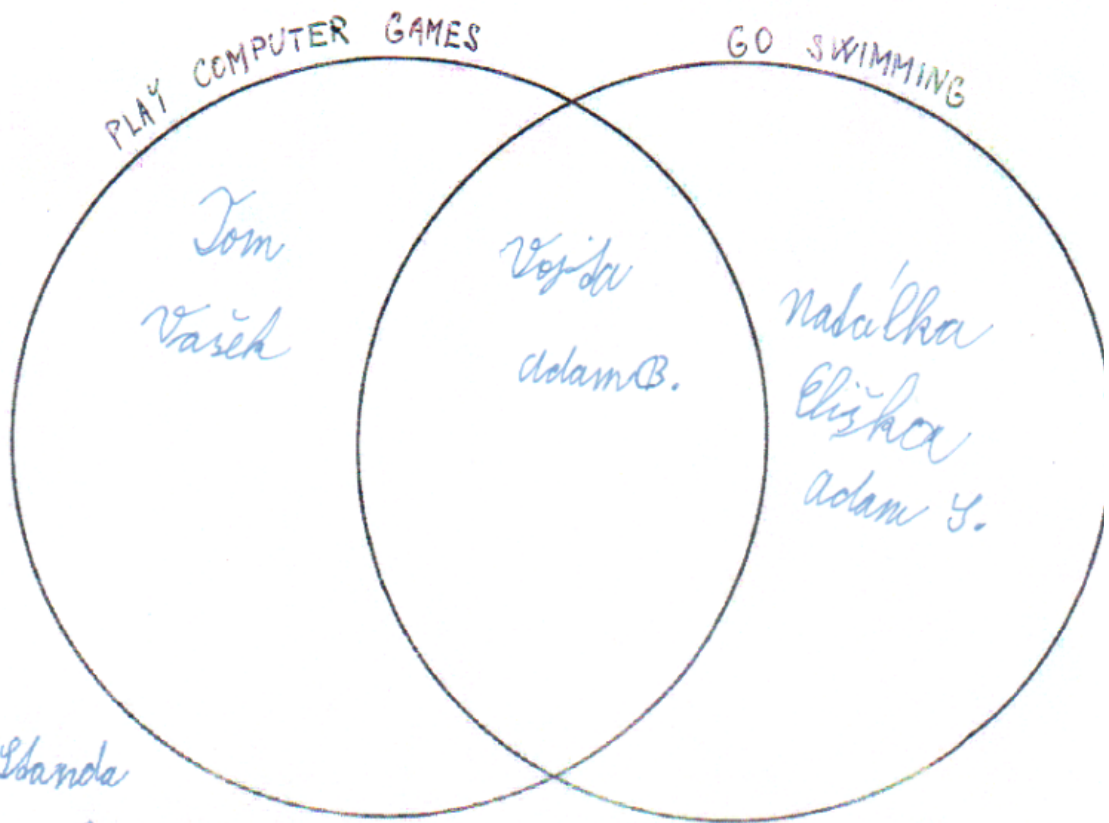 PLAY COMPUTER GAMES
GO SWIMMING
Tom
Vašek
Vojta
Adam B.
Natálka
Eliška
Adam S.
Standa